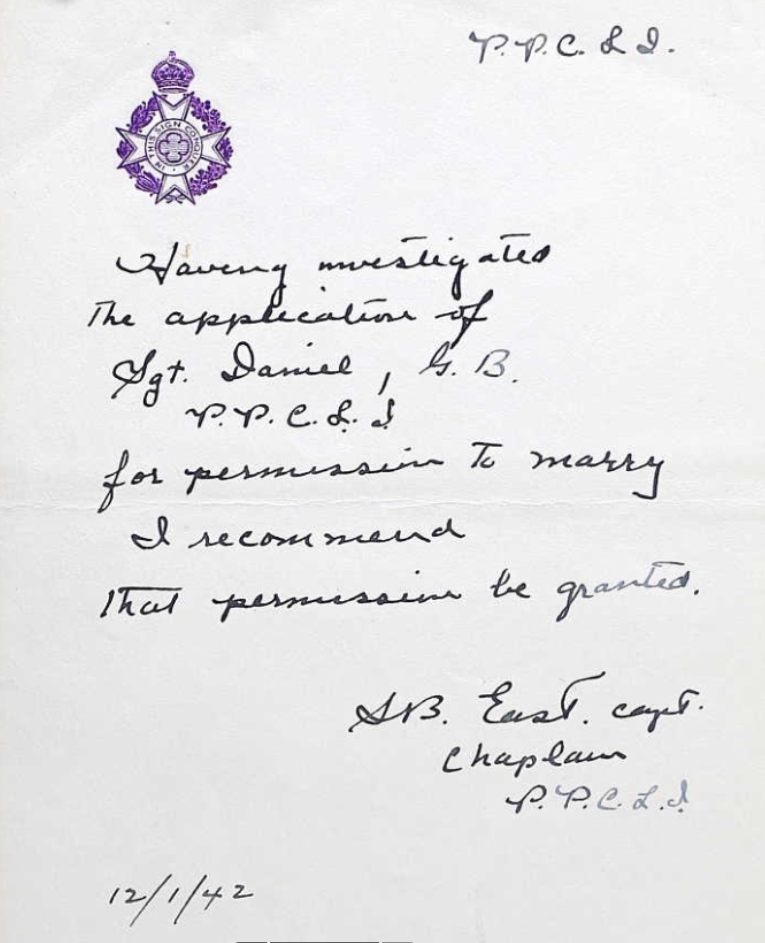 P.P.C.L.I.
IN THIS SIGN CONQUER
Having investigated
the application of
Sgt. Daniel, G.B.
P.P.C.L.I
for permission to marry
I recommend
that permission be granted.
S.B. East. capt.
Chaplain
P.P.C.L.I
12/1/42